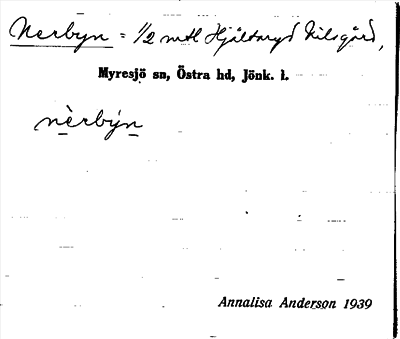 Nerbyn = 1/2 mtl Hjältaryd Nilsgård,
Myresjö sn, Östra hd, Jönk. l.
nèrbýn
Annalisa Anderson 1939